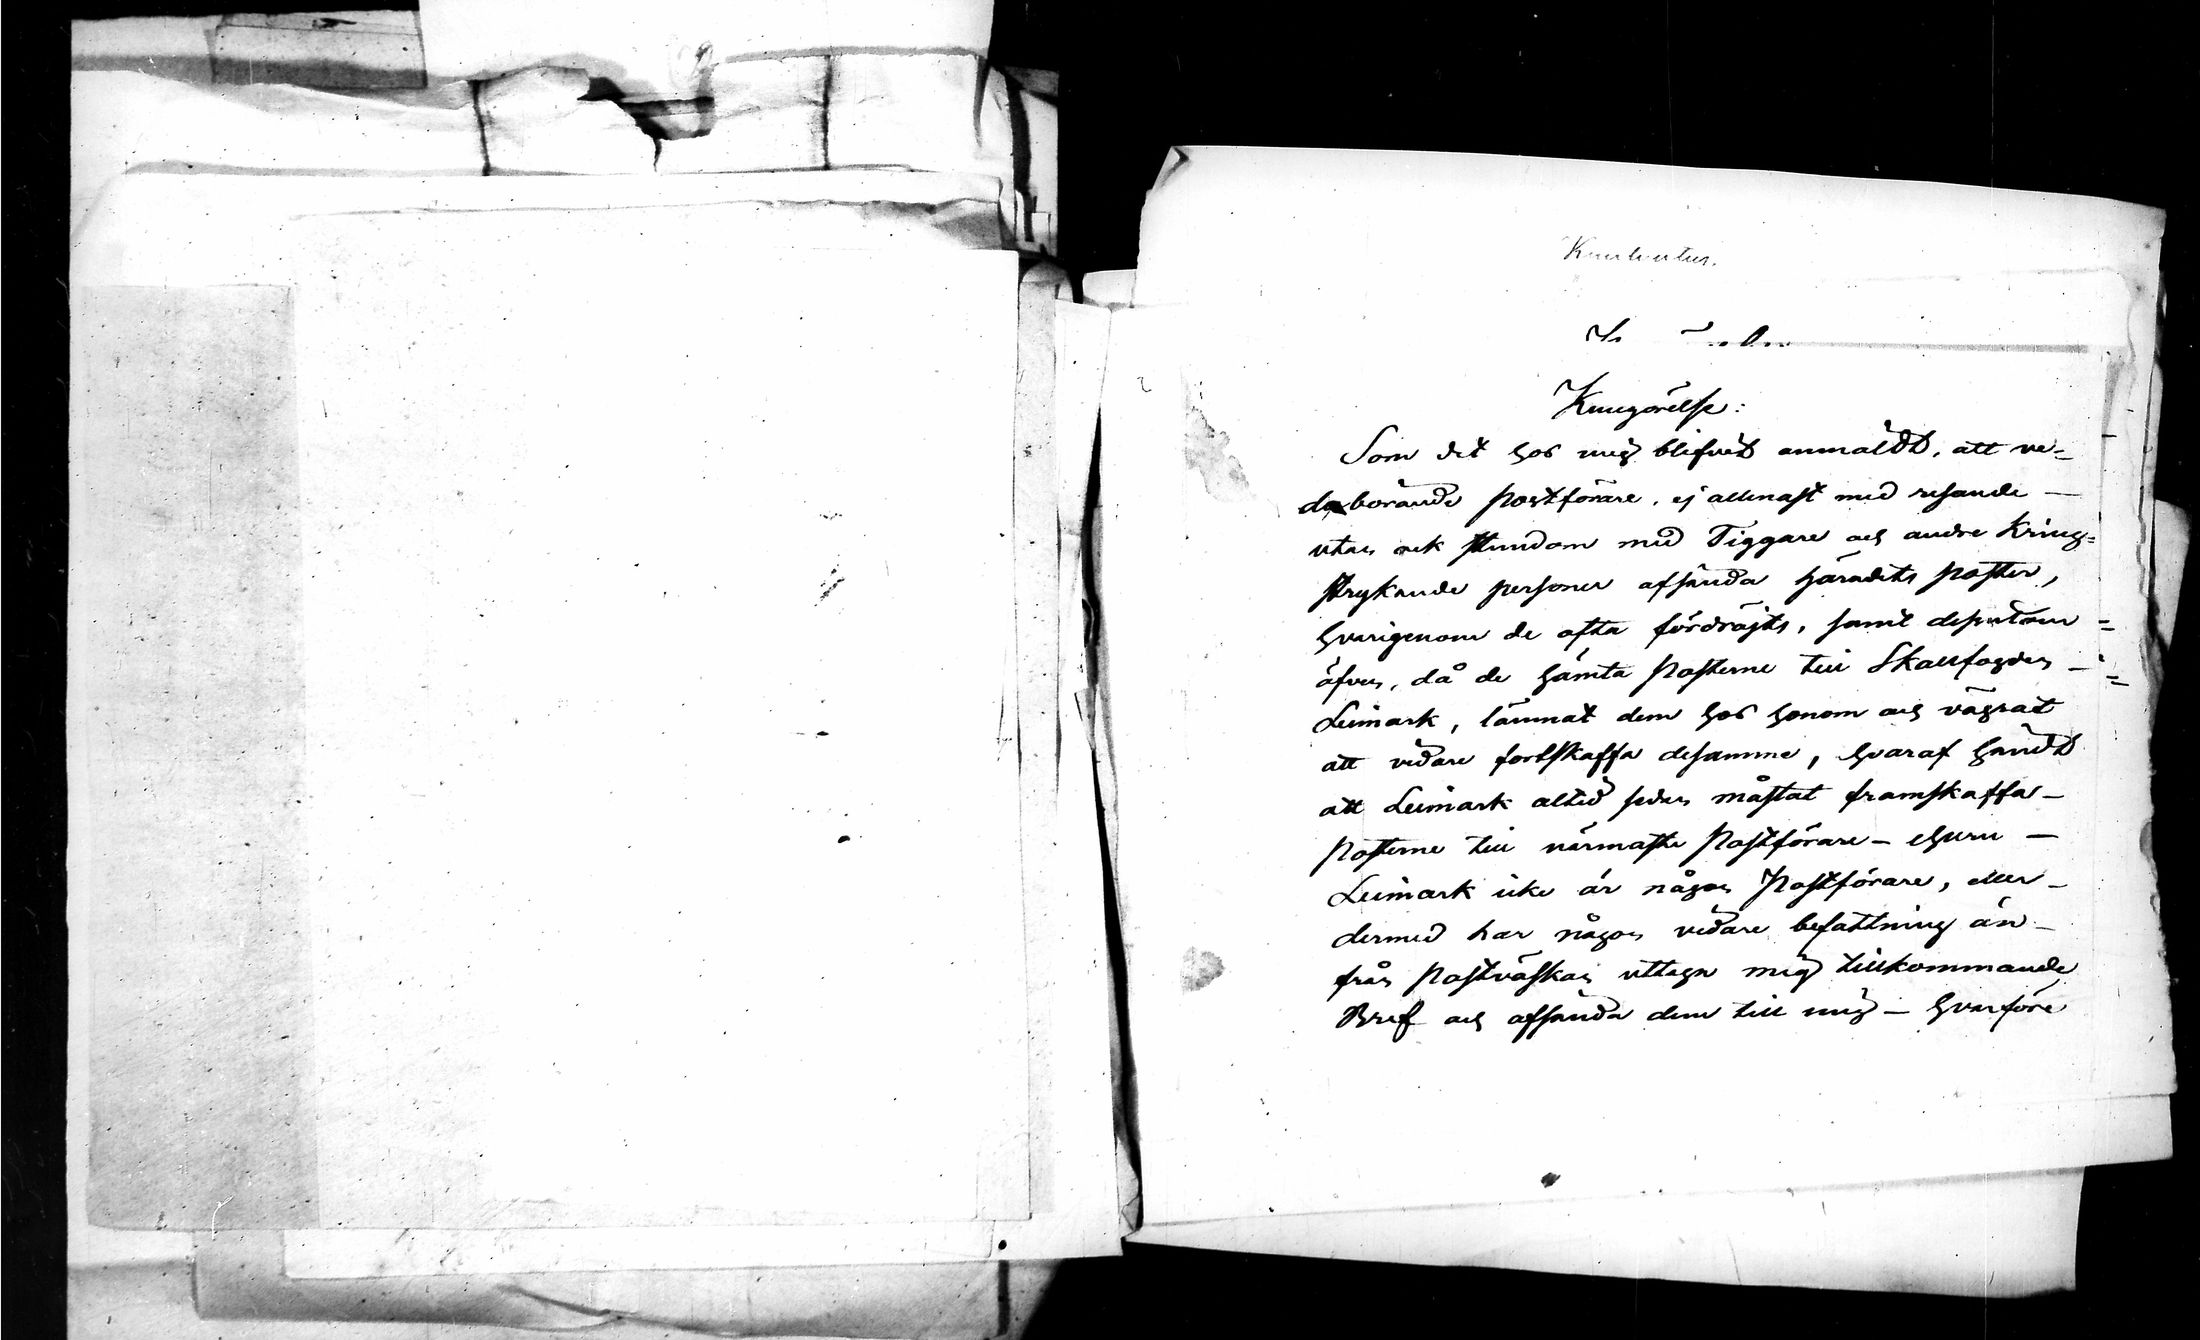 Kungörelse:
Som det hos mig blifvit anmäldt, att ve-
derbörande postförare, ej allenast med resande —
utan ock stundom med Tiggare och andre Kring-
strykande personer afsända häradets poster,
hvarigenom de ofta fördröjts, samt desutom =
äfven, då de hämta Posterne till Skallfogden —
Leimark, lämnat dem hos honom och vägrat
att vidare fortskaffa desamme, hvaraf händt
att Leimark altid sedan måstat framskaffa —
Posterne till närmaste Postförare — ehuru —
Leimark icke är någon Postförare, eller —
dermed har någon vidare befattning än —
från Postväskan uttaga mig tillkommande
Bref och afsända dem till mig — hvarföre